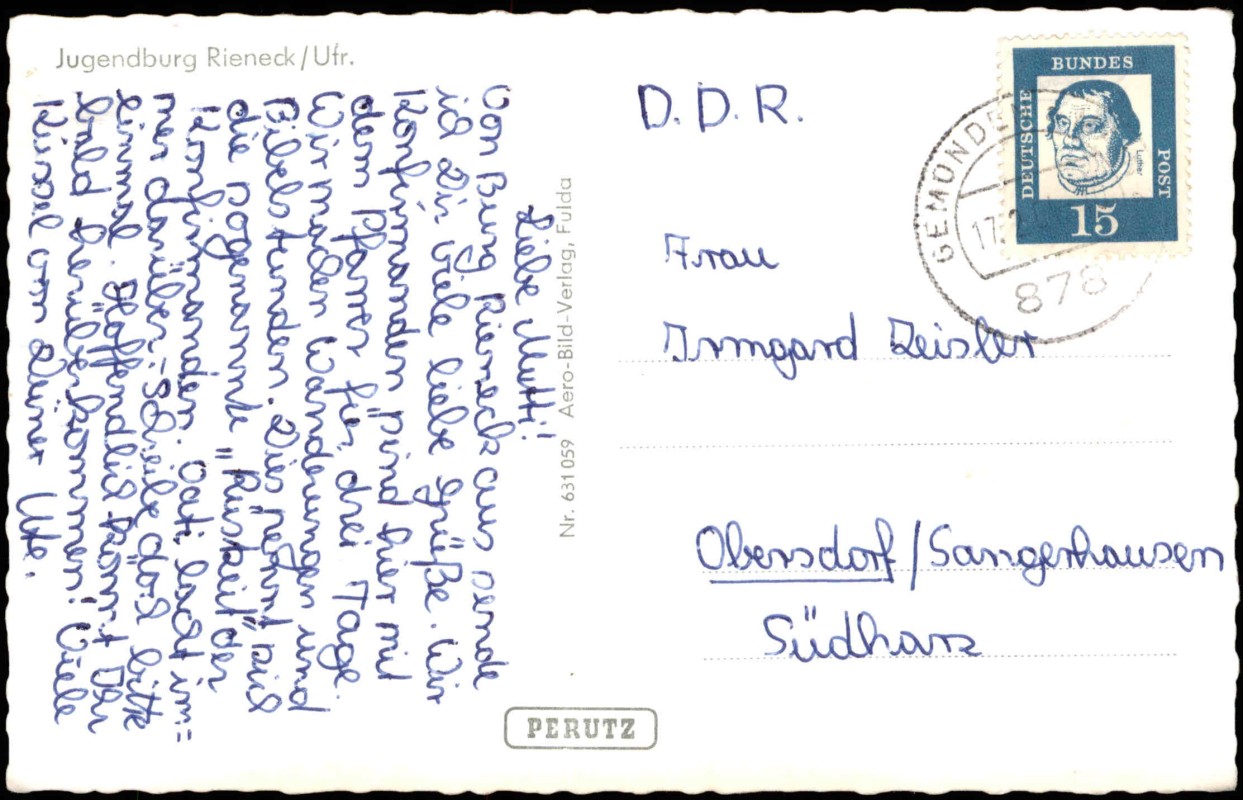 Jugendburg Rieneck/Ufr.
Liebe Mutti!
Von Burg Rieneck aus sende
ich Dir viele liebe Grüße. Wir
Konfirmanden sind hier mit
dem Pfarrer für drei Tage.
Wir machen Wanderungen und
Bibelstunden. Dies nennt sich
die sogenannte "Rüstzeit" der
Konfirmanden. Vati lacht im=
mer darüber. Schreibe doch bitte
einmal. Hoffendlich kommt Ihr
bald herüberkommen! Viele
Küssel von Deiner Ute.
Nr. 631059 Aero-Bild-Verlag, Fulda
PERUTZ
D. D. R.
Frau
Irmgard Zeisler
Obersdorf/Sangerhausen
Südharz
DEUTSCHE
BUNDES
POST
Luther
15
GEMÜNDEN
17.
878